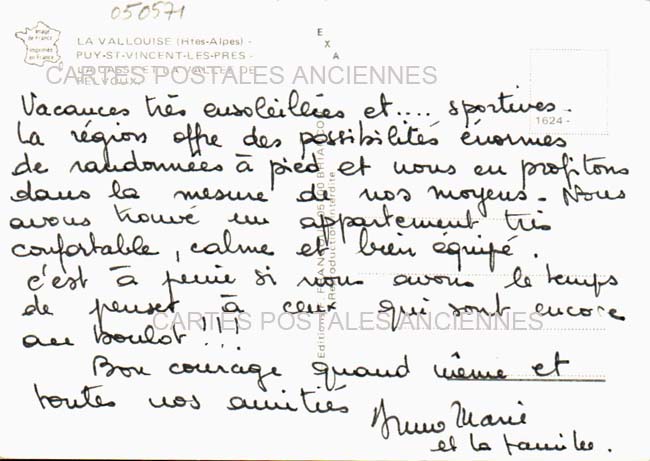 050571
Image de France
Imprimée en France
LA VALLOUISE (Htes-Alpes) -
PUY-ST-VINCENT-LES-PRES -
LA CASSE ET LA VALLÉE DE
PELVOUX
EXA
1624 -
CARTES POSTALES ANCIENNES
Vacances très ensoleillées et.... sportives.
La région offre des possibilités énormes
de randonnées à pied et nous en profitons
dans la mesure de nos moyens. Nous
avons trouvé un appartement très
confortable, calme et bien équipé.
c'est à peine si nous avons le temps
de penser à ceux qui sont encore
au boulot !!!
CARTES POSTALES ANCIENNES
Bon courage quand même et
toutes nos amitiés
Bruno Marie
et la famille.
Reproduction interdite